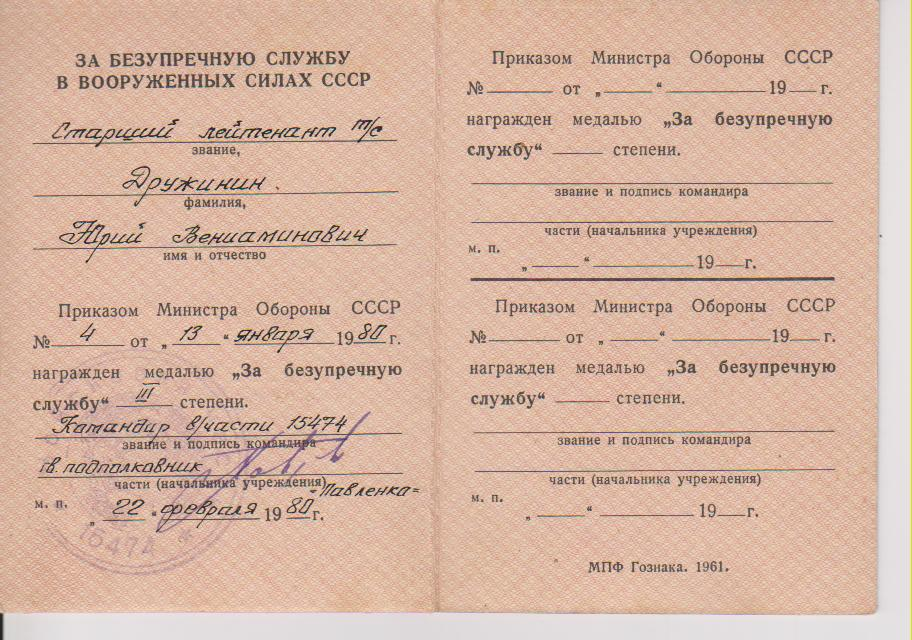 ЗА БЕЗУПРЕЧНУЮ СЛУЖБУ
В ВООРУЖЕННЫХ СИЛАХ СССР
Старший лейтенант т/с
звание,
Дружинин.
фамилия,
Юрий Вениаминович
имя и отчество
Приказом Министра Обороны СССР
№ 4 от „13“ января 1980 г.
награжден медалью „За безупречную
службу“ III степени.
Командир в/части 15474
звание и подпись командира
гв. подполковник
части (начальника учреждения)
=Павленка=
м. п.
„22“ февраля 1980 г.
15474 *
Приказом Министра Обороны СССР
№ от „ “ 19 г.
награжден медалью „За безупречную
службу“ степени.
звание и подпись командира
части (начальника учреждения)
м. п.
„ “ 19 г.
Приказом Министра Обороны СССР
№ от „ “ 19 г.
награжден медалью „За безупречную
службу“ степени.
звание и подпись командира
части (начальника учреждения)
м. п.
„ “ 19 г.
МПФ Гознака. 1961.